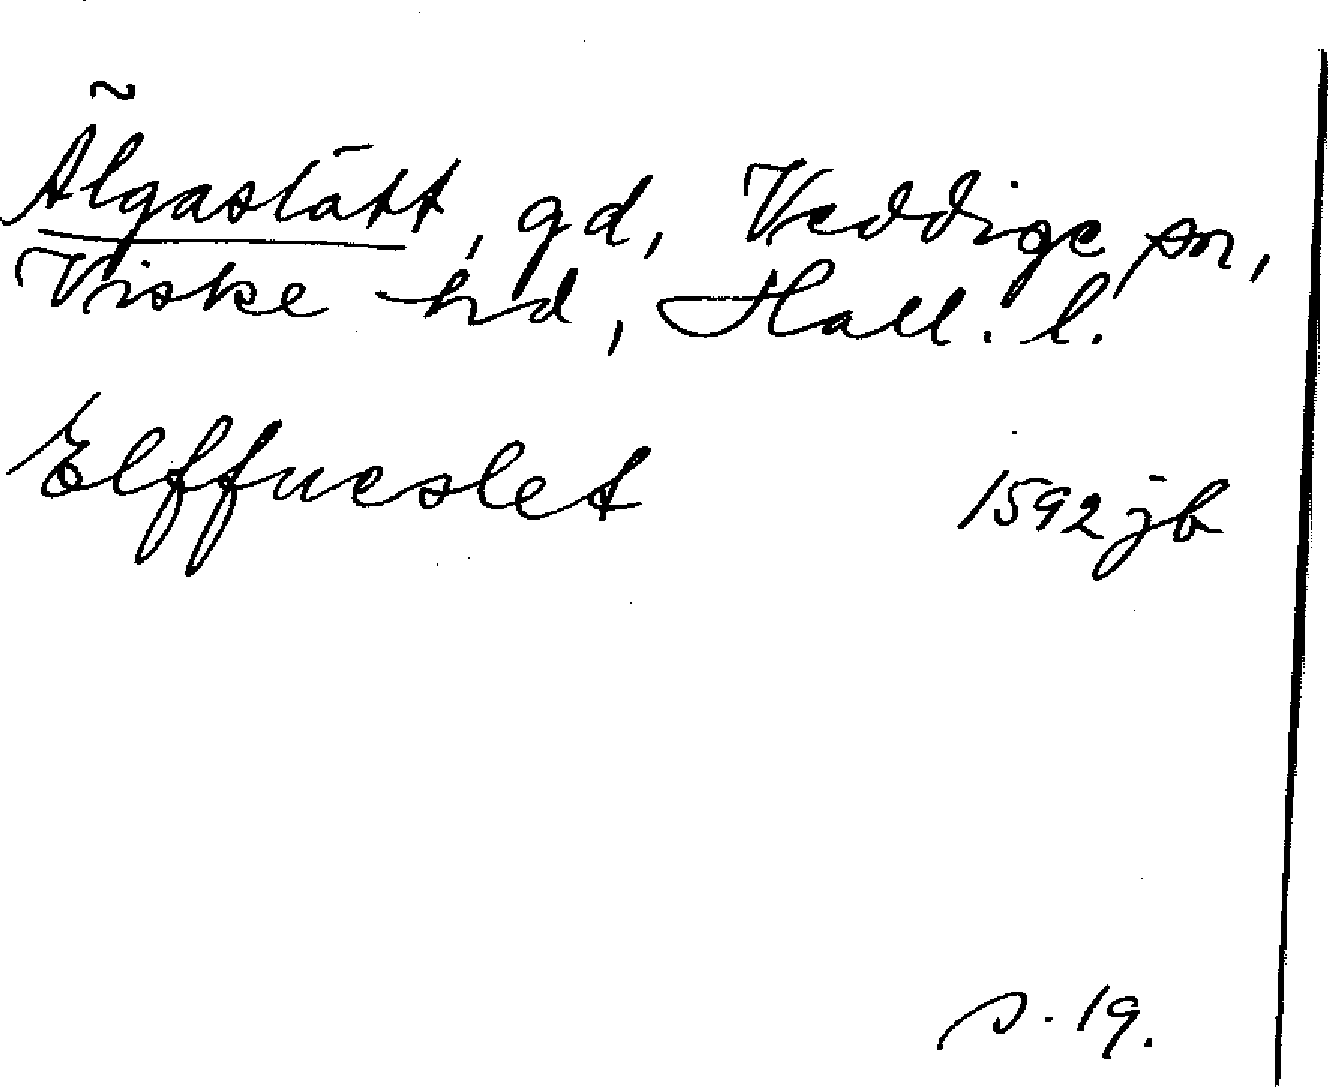 Älgaslätt, gd, Veddige sn,
Viske hd, Hall. l.
Elffueslet 1592 jb
s. 19.